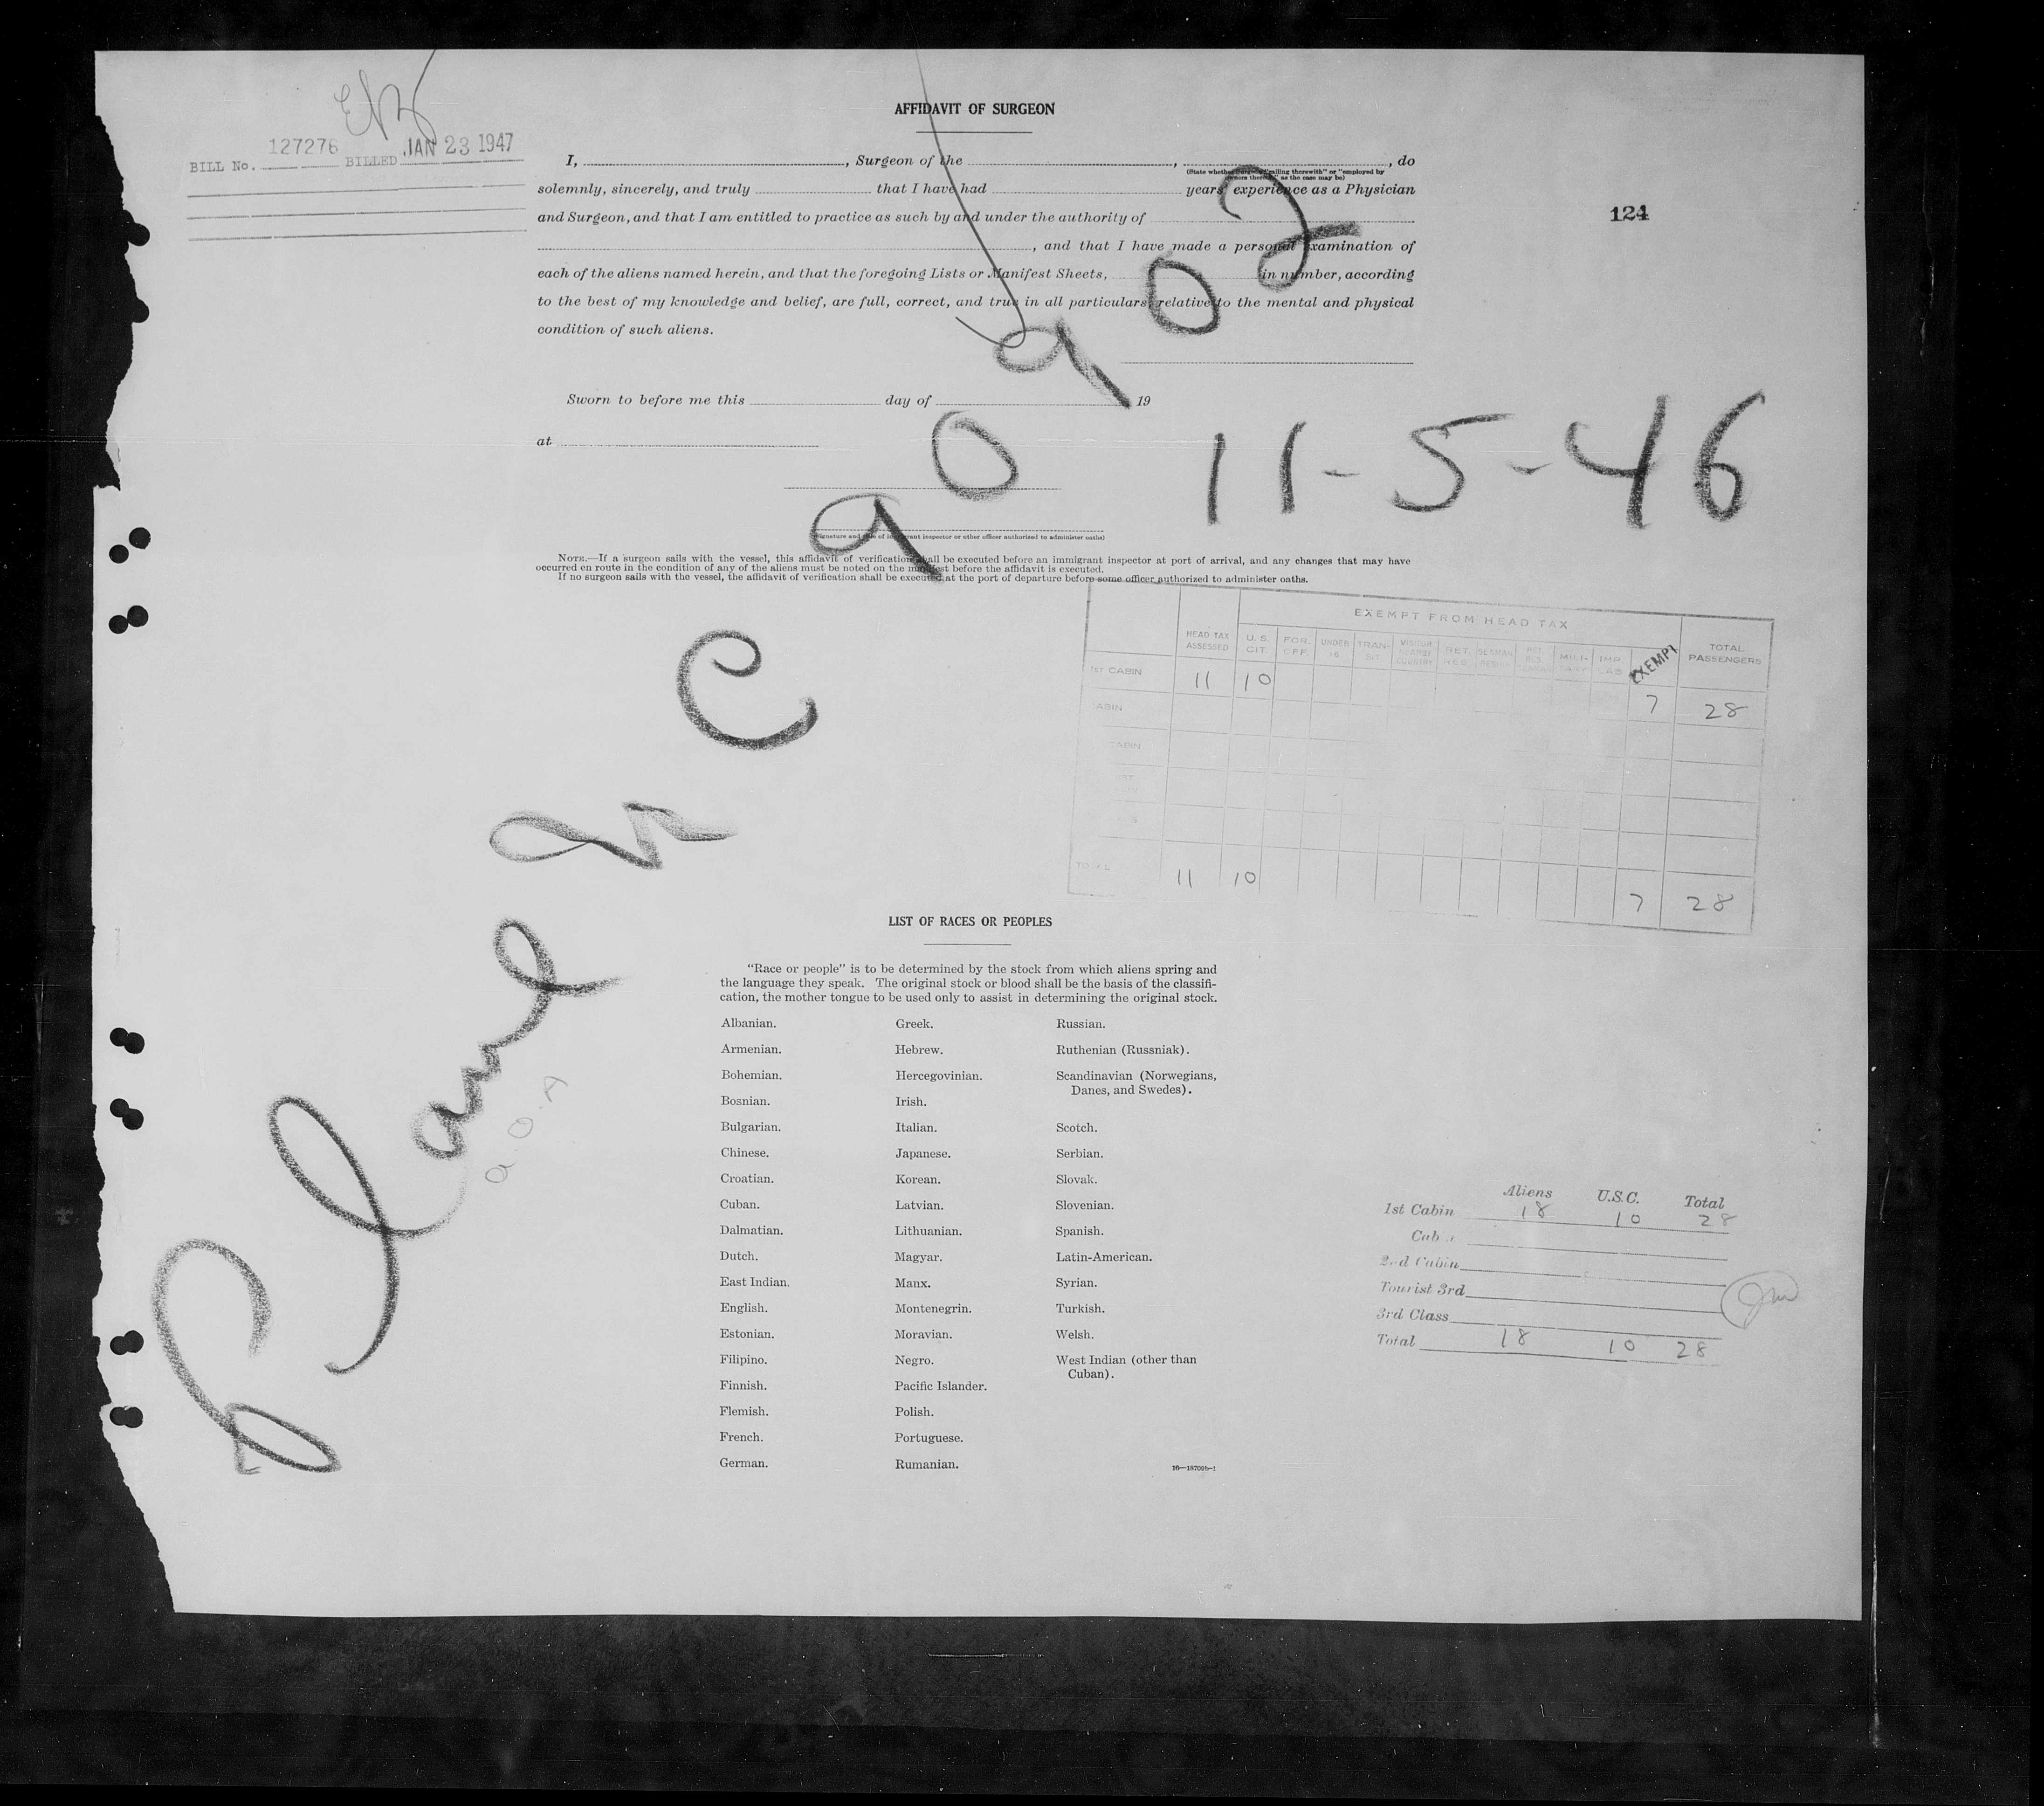 BILL No. 127276 BILLED JAN 23 1947
AFFIDAVIT OF SURGEON
124
I, , Surgeon of the , , do
(State whether surgeon "sailing therewith" or "employed by
owners thereof," as the case may be)
solemnly, sincerely, and truly that I have had years' experience as a Physician
and Surgeon, and that I am entitled to practice as such by and under the authority of
, and that I have made a personal examination of
each of the aliens named herein, and that the foregoing Lists or Manifest Sheets, in number, according
to the best of my knowledge and belief, are full, correct, and true in all particulars relative to the mental and physical
condition of such aliens.
Sworn to before me this day of 19
at
(Signature and title of immigrant inspector or other officer authorized to administer oaths)
Plane NC 90902
11-5-46
NOTE.—If a surgeon sails with the vessel, this affidavit of verification shall be executed before an immigrant inspector at port of arrival, and any changes that may have
occurred en route in the condition of any of the aliens must be noted on the manifest before the affidavit is executed.
If no surgeon sails with the vessel, the affidavit of verification shall be executed at the port of departure before some officer authorized to administer oaths.
EXEMPT FROM HEAD TAX
HEAD TAX ASSESSED U. S. CIT. FOR. OFF. UNDER 16 TRAN- SIT VISITOR NEARBY COUNTRY RET. RES. SEAMAN MILI- TARY EXEMPT TOTAL PASSENGERS
1ST CABIN 11 10 7 28
CABIN
CABIN
TOTAL 11 10 7 28
A.O.A
LIST OF RACES OR PEOPLES
"Race or people" is to be determined by the stock from which aliens spring and
the language they speak. The original stock or blood shall be the basis of the classifi-
cation, the mother tongue to be used only to assist in determining the original stock.
Albanian. Greek. Russian.
Armenian. Hebrew. Ruthenian (Russniak).
Bohemian. Hercegovinian. Scandinavian (Norwegians,
Danes, and Swedes).
Bosnian. Irish.
Bulgarian. Italian. Scotch.
Chinese. Japanese. Serbian.
Croatian. Korean. Slovak.
Cuban. Latvian. Slovenian.
Dalmatian. Lithuanian. Spanish.
Dutch. Magyar. Latin-American.
East Indian. Manx. Syrian.
English. Montenegrin. Turkish.
Estonian. Moravian. Welsh.
Filipino. Negro. West Indian (other than
Cuban).
Finnish. Pacific Islander.
Flemish. Polish.
French. Portuguese.
German. Rumanian.
16—18709b-1
Aliens U.S.C. Total
1st Cabin 18 10 28
Cabin
2nd Cabin
Tourist 3rd
3rd Class
Total 18 10 28